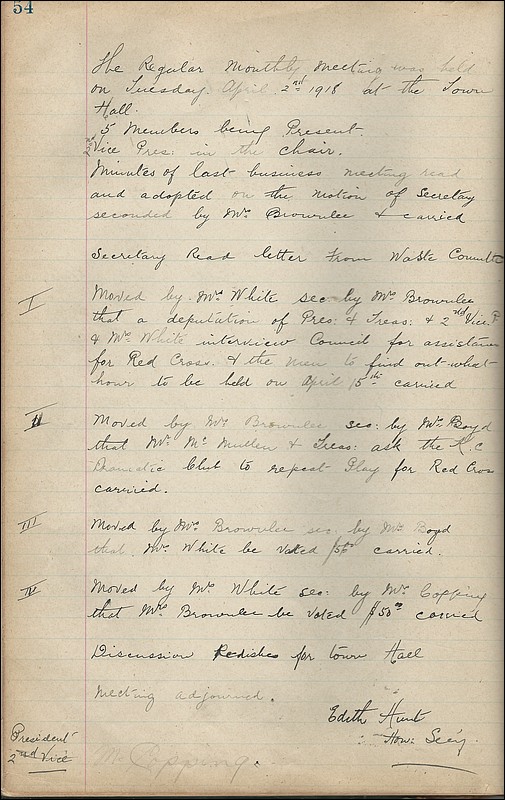 54
The Regular Monthly meeting was held
on Tuesday April 2nd 1918 at the Town
Hall.
5 Members being Present.
2nd Vice Pres: in the chair.
Minutes of last business meeting read
and adopted on the motion of Secretary
seconded by Mrs Brownlee & carried
Secretary Read letter from Waste Committe
I
Moved by Mrs White sec by Mrs Brownlee
that a deputation of Pres: & Treas: & 2nd Vice P
& Mrs White interview Council for assistance
for Red Cross. & the men to find out what
hour to be held on April 15th carried
II
Moved by Mrs Brownlee sec: by Mrs Boyd
that Mrs Mc Mullen & Treas: ask the R.C
Dramatic Club to repeat Play for Red Cross
carried.
III
Moved by Mrs Brownlee sec by Mrs Boyd
that Mrs White be voted carried.
IV
Moved by Mrs White sec: by Mrs Copping
that Mrs Brownlee be voted $50 00 carried
Discussion for town Hall
meeting adjourned.
Edith Hunt
Hon: Secy.
President
2nd Vice
Mrs Copping.